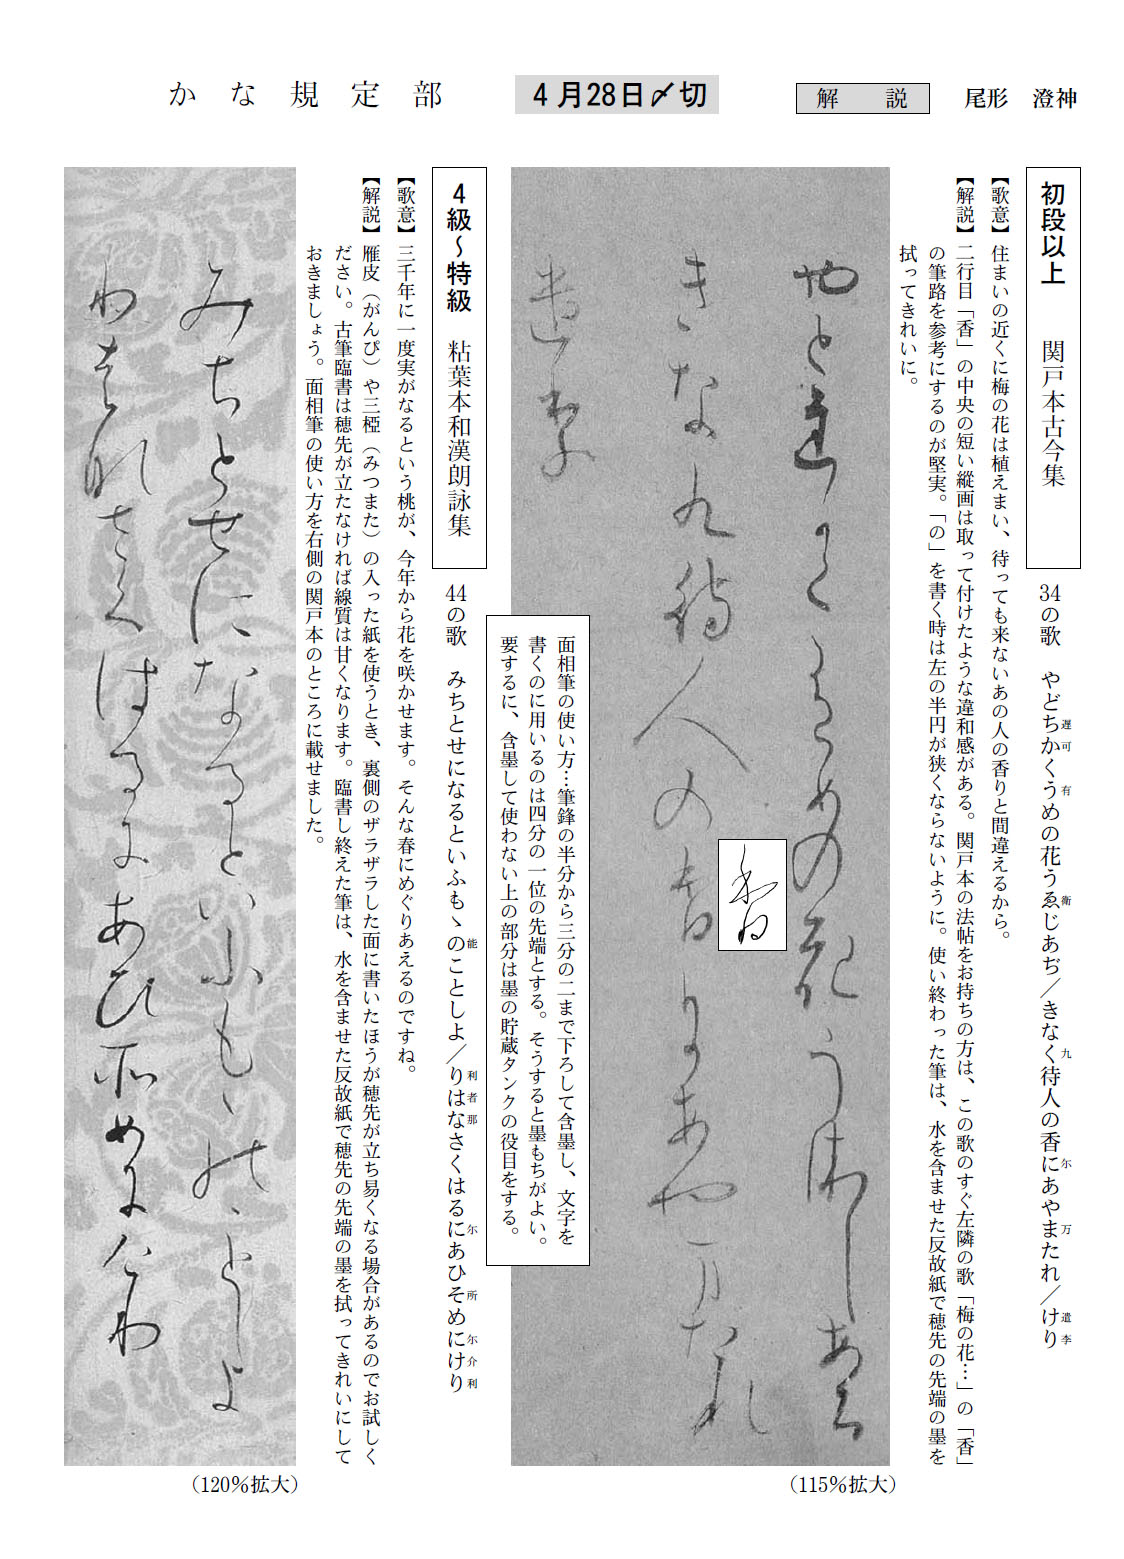 かな規定部
4月28日〆切
解説
尾形 澄神
初段以上 関戸本古今集
34の歌 やどちかくうめの花うゑじあぢ／きなく待人の香にあやまたれ／けり
遅可 有 衛 九 尓 万 遣李
【歌意】住まいの近くに梅の花は植えまい、待っても来ないあの人の香りと間違えるから。
【解説】二行目「香」の中央の短い縦画は取って付けたような違和感がある。関戸本の法帖をお持ちの方は、この歌のすぐ左隣の歌「梅の花…」の「香」
の筆路を参考にするのが堅実。「の」を書く時は左の半円が狭くならないように。使い終わった筆は、水を含ませた反故紙で穂先の先端の墨を
拭ってきれいに。
やと遅可くうめの花うゑしあち
きなく待人の香尓あや万たれ
遣李
香
（115%拡大）
面相筆の使い方…筆鋒の半分から三分の二まで下ろして含墨し、文字を
書くのに用いるのは四分の一位の先端とする。そうすると墨もちがよい。
要するに、含墨して使わない上の部分は墨の貯蔵タンクの役目をする。
4級～特級 粘葉本和漢朗詠集
44の歌 みちとせになるといふもゝのことしよ／りはなさくはるにあひそめにけり
能 利者那 尓 所 尓介利
【歌意】三千年に一度実がなるという桃が、今年から花を咲かせます。そんな春にめぐりあえるのですね。
【解説】雁皮（がんぴ）や三椏（みつまた）の入った紙を使うとき、裏側のザラザラした面に書いたほうが穂先が立ち易くなる場合があるのでお試しく
ださい。古筆臨書は穂先が立たなければ線質は甘くなります。臨書し終えた筆は、水を含ませた反故紙で穂先の先端の墨を拭ってきれいにして
おきましょう。面相筆の使い方を右側の関戸本のところに載せました。
みちとせになるといふもゝ能ことしよ
利者那さくはる尓あひ所め尓介利
（120%拡大）